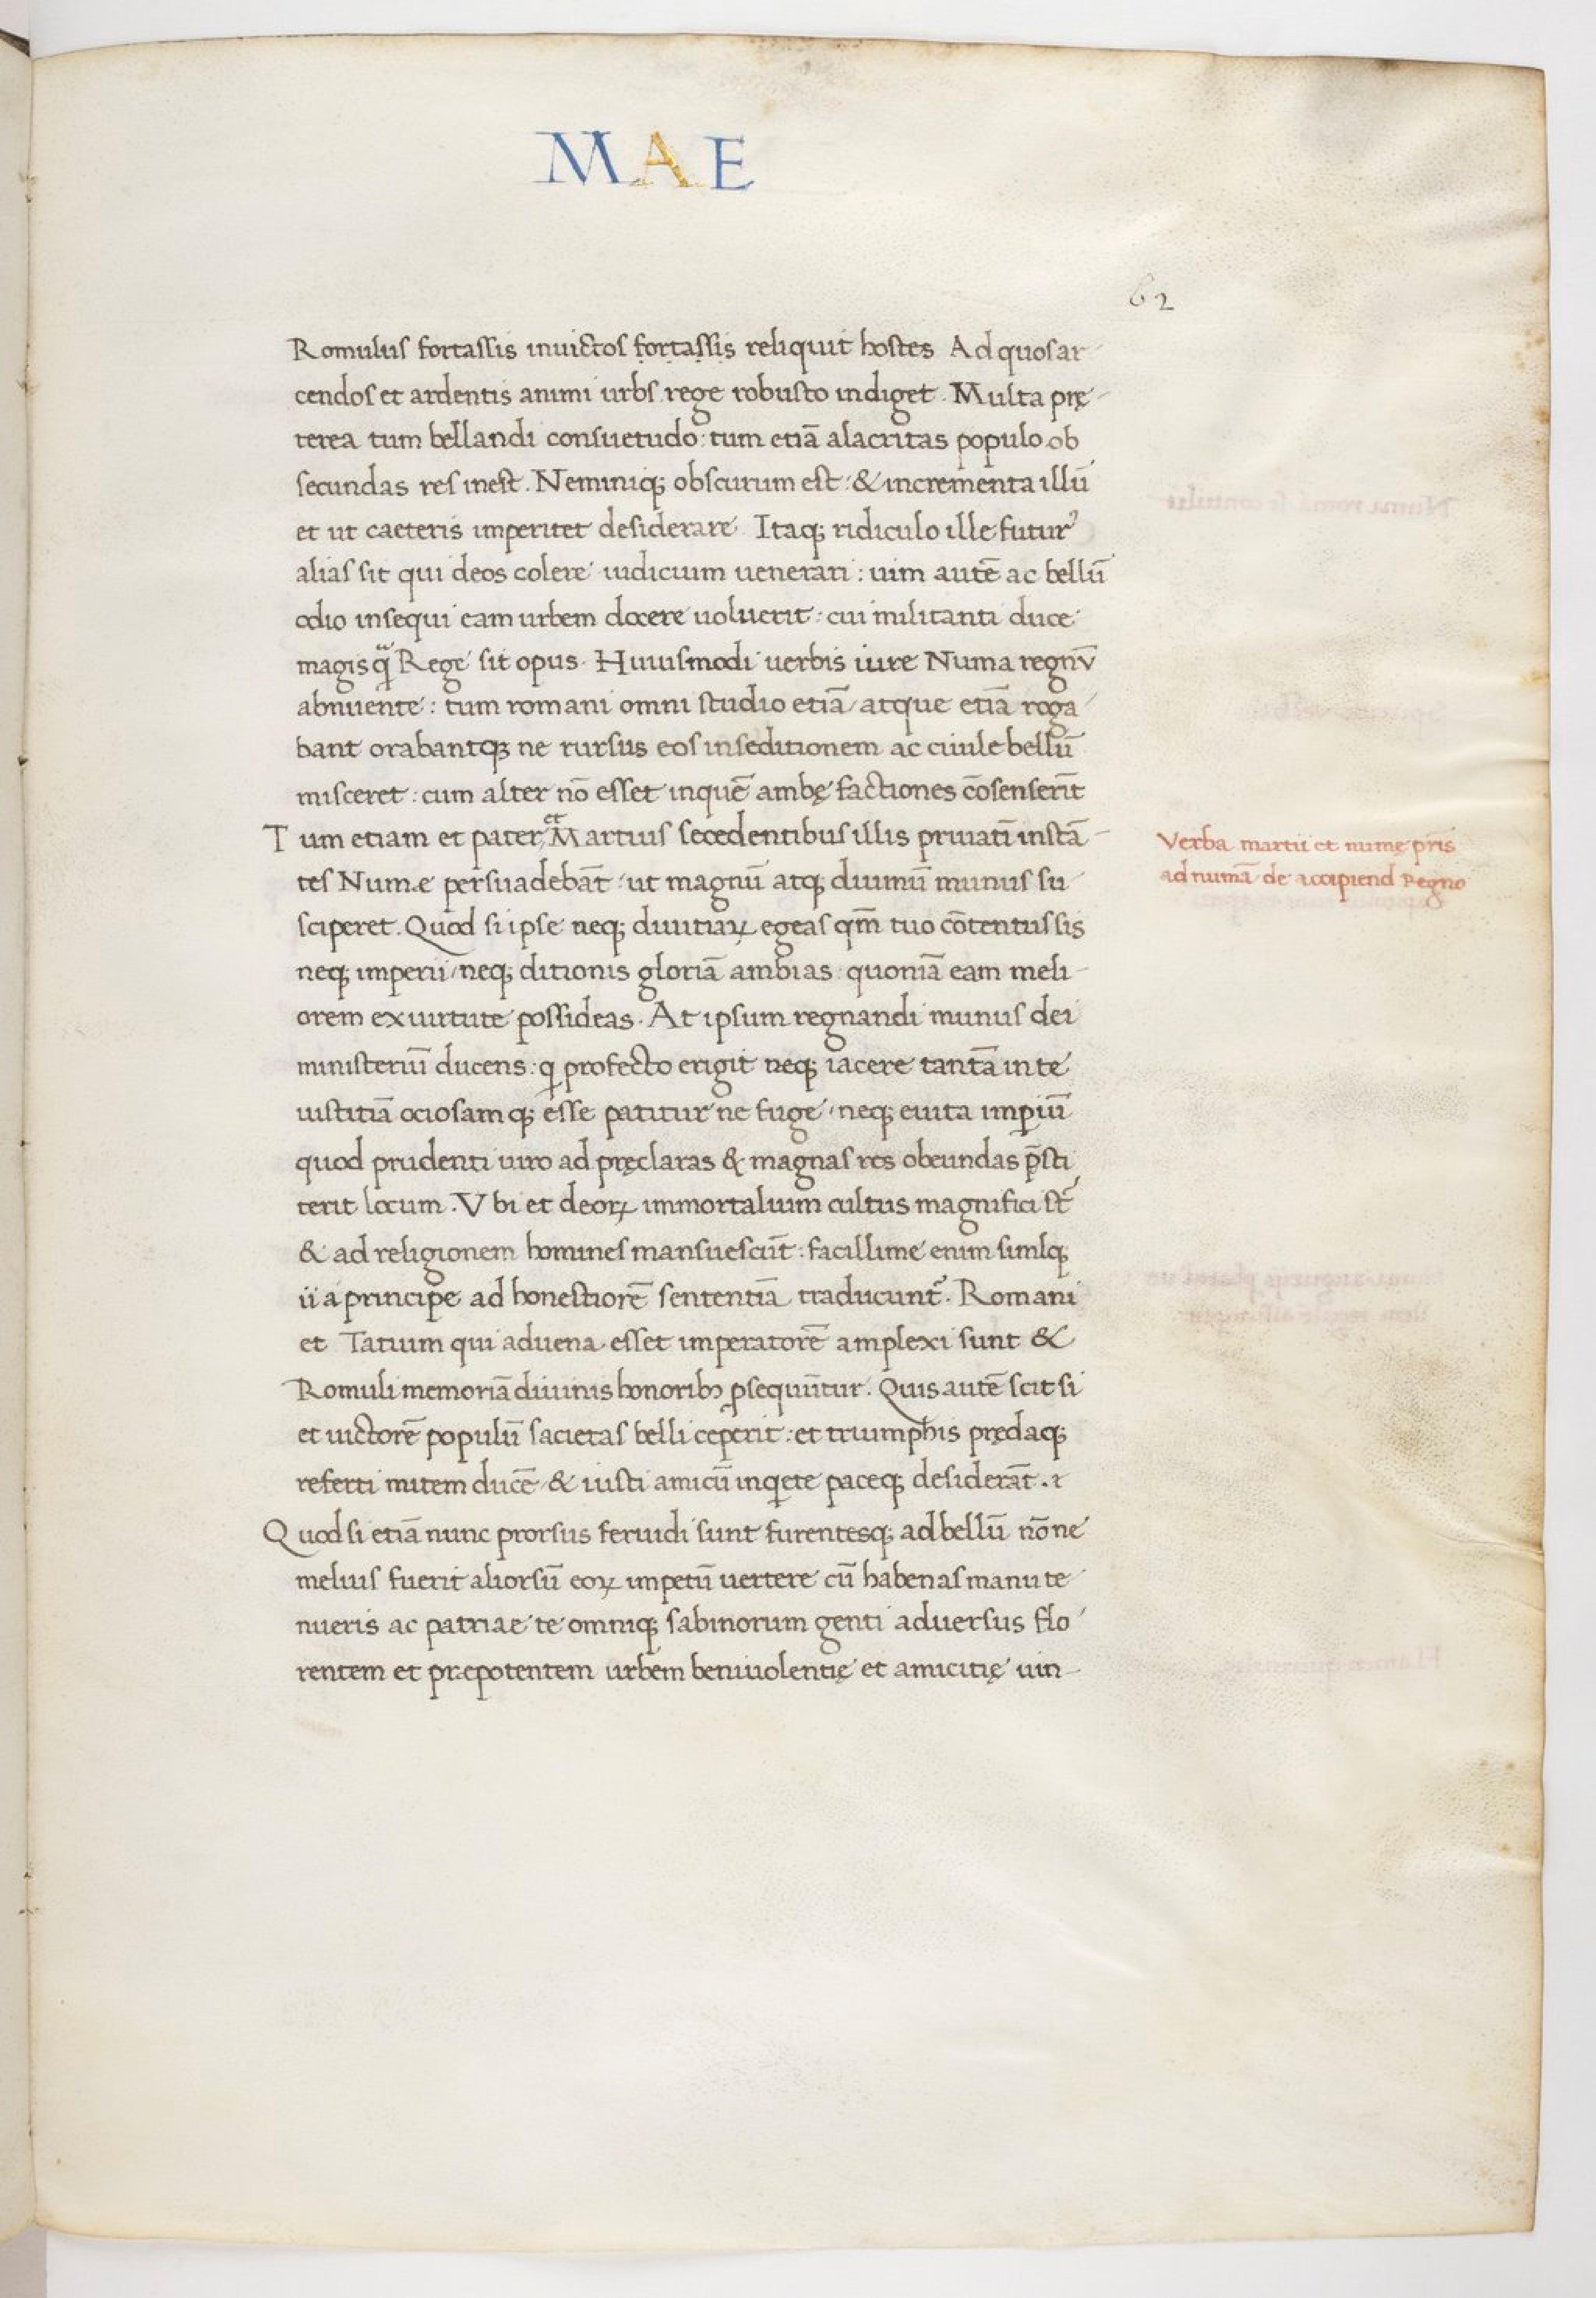 MAE
62
Romulus fortassis inuictos fortassis reliquit hostes Ad quos ar-
cendos et ardentis animi urbs rege robusto indiget. Multa prę-
terea tum bellandi consuetudo: tum etiā alacritas populo ob
secundas res inest. Neminiq; obscurum est: & incrementa illū
et ut caeteris imperitet desiderare Itaq; ridiculo ille futur᾽
alias sit qui deos colere iudicium uenerari: uim autē ac bellū
odio insequi eam urbem docere uoluerit: cui militanti duce
magis qͣ Rege sit opus. Huiusmodi uerbis iure Numa regnū
abnuente: tum romani omni studio etiā atque etiā roga
bant orabantq; ne rursus eos in seditionem ac ciuile bellū
misceret: cum alter nō esset inquē ambę factiones cōsenserīt
Tum etiam et pater, et Martius secedentibus illis priuatī instā-
tes Numæ persuadebāt: ut magnū atq; diuinū munus su
sciperet. Quod si ipse neq; diuitiaꝝ egeas qm̄ tuo cōtentus sis
neq; imperii/neq; ditionis gloriā ambias: quoniā eam meli-
orem ex uirtute possideas. At ipsum regnandi munus dei
ministeriū ducens: ꝗ profecto erigit neq; iacere tantā in te
iustitiā ociosamq; esse patitur ne fuge/neq; euita impiū
quod prudenti uiro ad pręclaras & magnas res obeundas p̄sti
terit locum. Vbi et deoꝝ immortalium cultus magnifici st᾽
& ad religionem homines mansuescūt: facillime enim simlq;
ii a principe ad honestiorē sententiā traducunt᾽. Romani
et Tatium qui aduena esset imperatorē amplexi sunt &
Romuli memoriā diuinis honoribꝫ ꝑsequūtur. Quis autē scit si
et uictorē populū sacietas belli ceperit: et triumphis prędaq;
referti mitem ducē & iusti amicū inꝗete paceq; desiderāt. &
Quod si etiā nunc prorsus feruidi sunt furentesq; ad bellū nōne
melius fuerit aliorsū eoꝝ impetū uertere cū habenas manu te
nueris ac patriae te omniq; sabinorum genti aduersus flo
rentem et præpotentem urbem beniuolentię et amicitię uin-
Verba martii et numę pris
ad numā de accipiend Regno